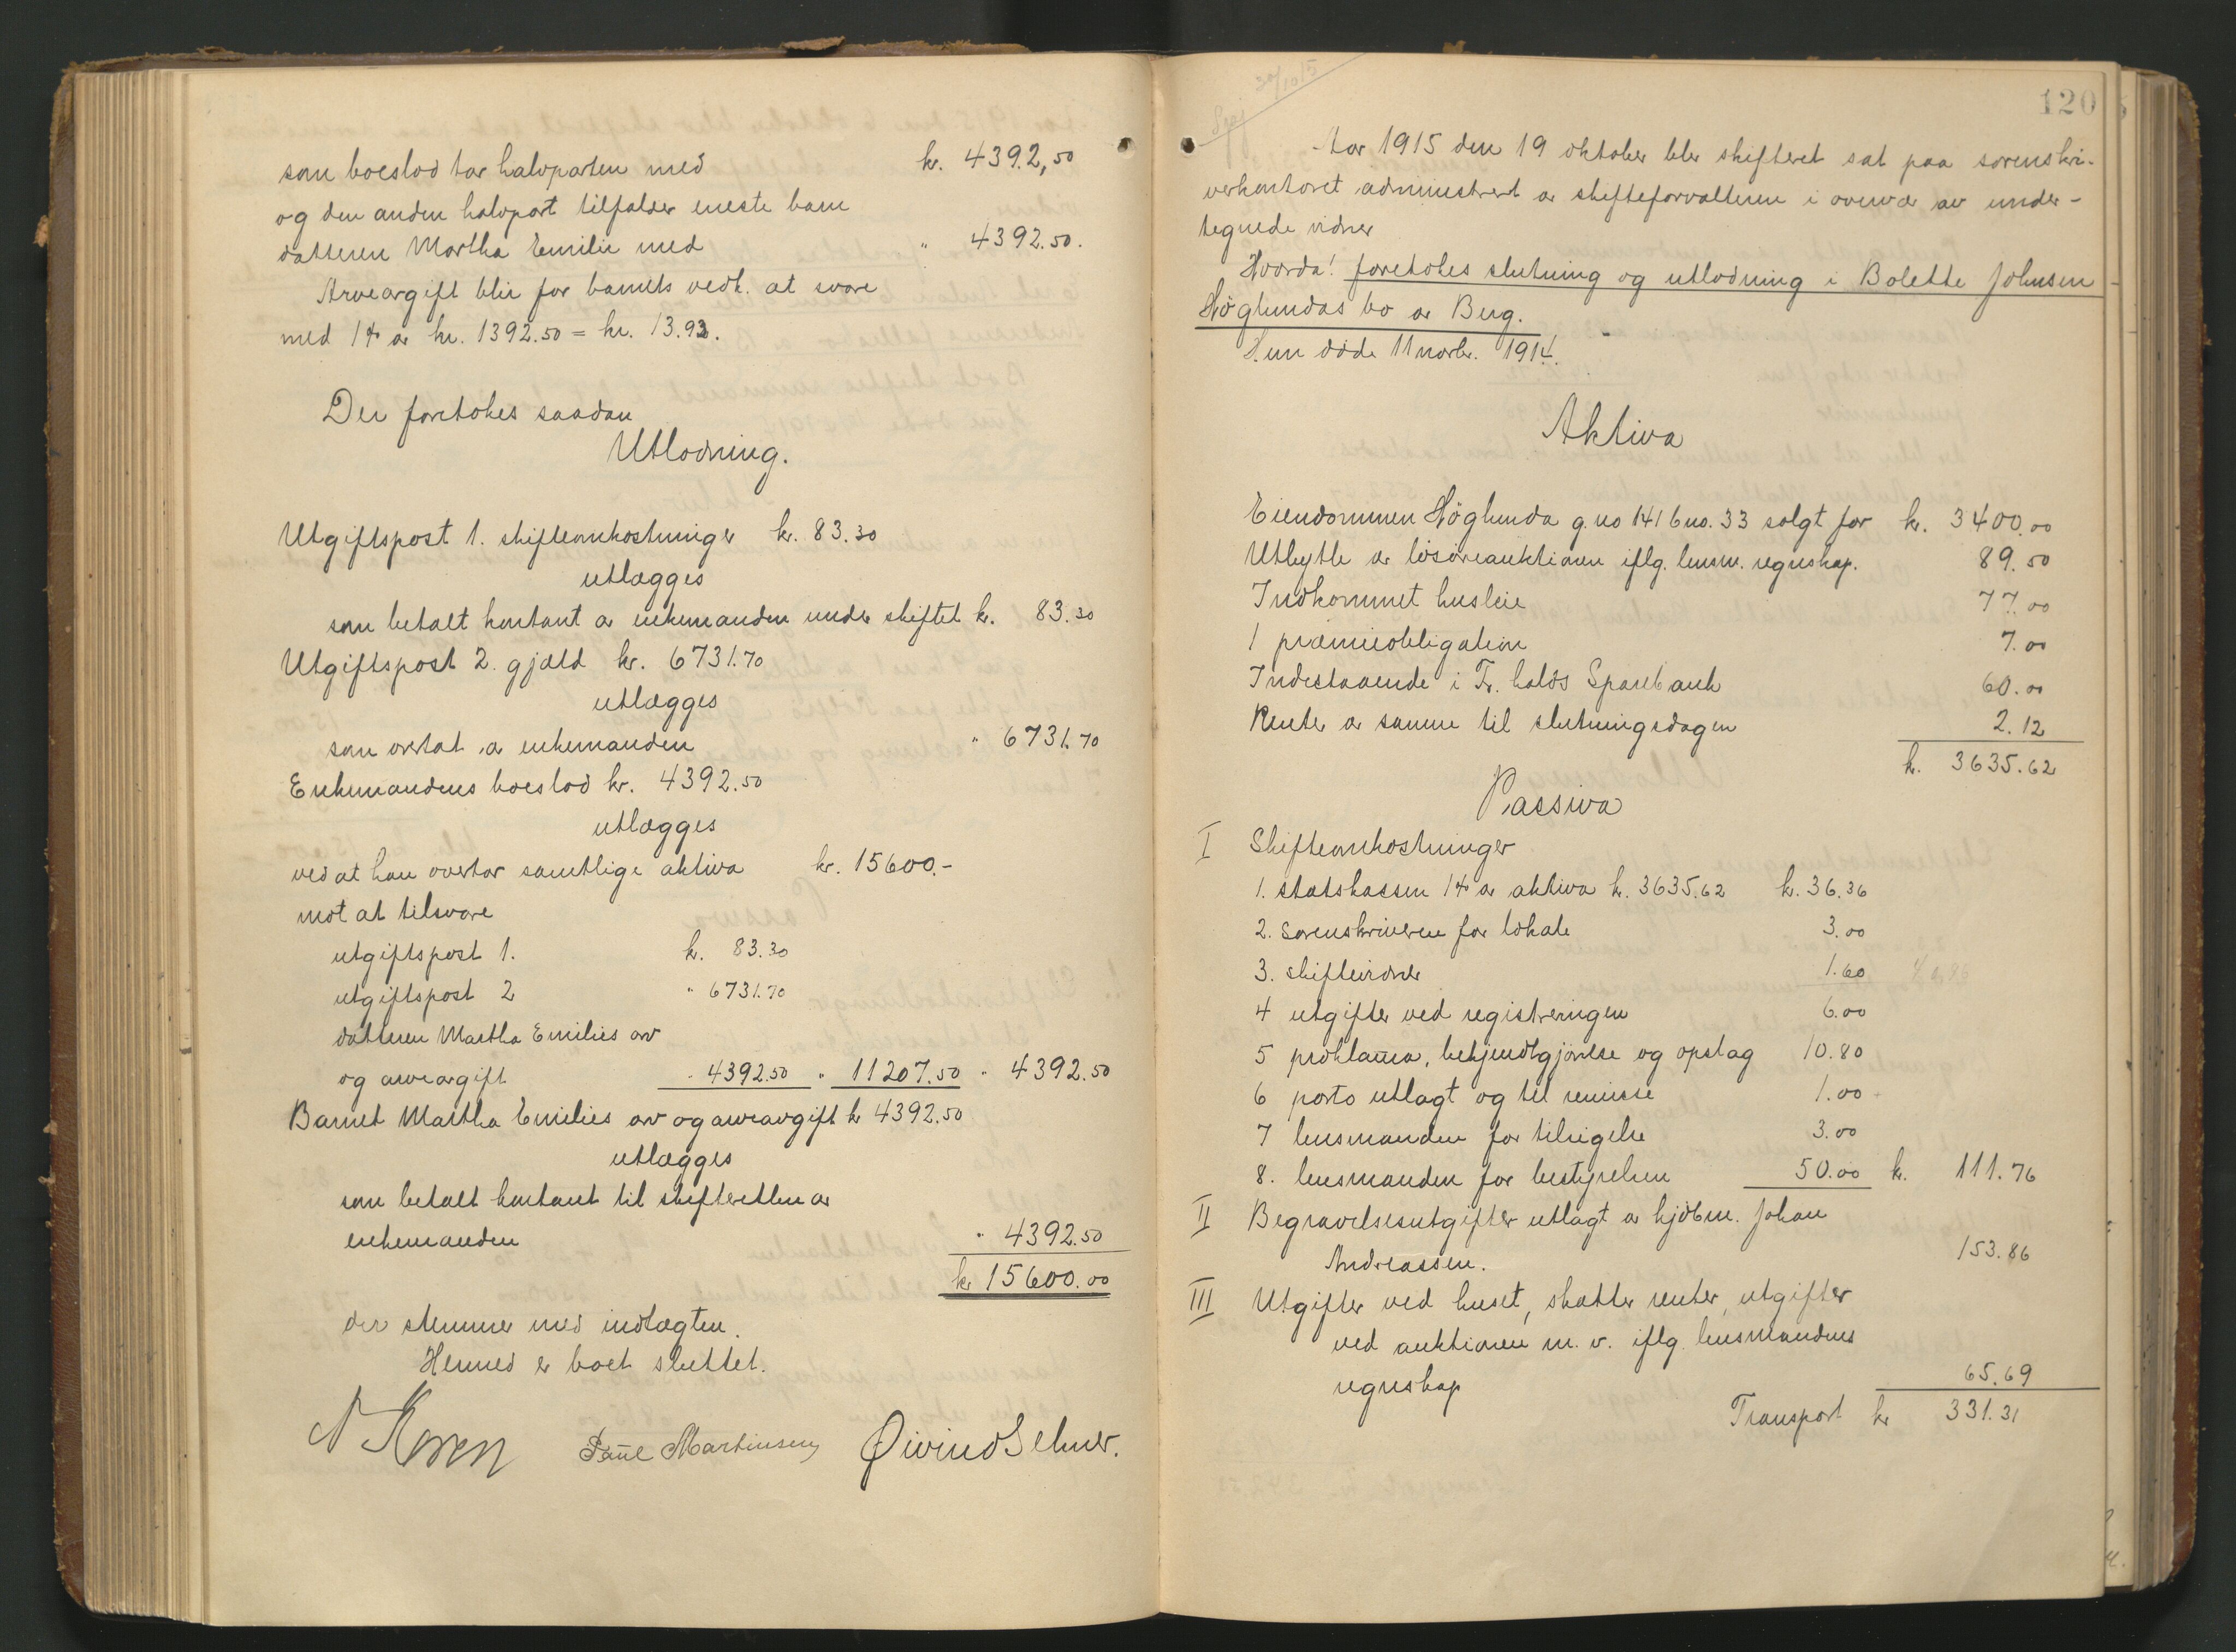 som boeslod tar halvparten med kr. 4392,50
og den anden halvpart tilfalder eneste barn
datteren Martha Emilie med " 4392.50.
Arveavgift blir for barnets vedk. at svare
med 1% av kr. 1392.50 = kr. 13.93.
Der foretokes saadan
Utlodning.
Utgiftspost 1. skifteomkostninger kr. 83.30
utlægges
som betalt kontant av enkemanden under skiftet kr. 83.30
Utgiftspost 2. gjæld kr. 6731.70
utlægges
som overtat av enkemanden " 6731.70
Enkemandens boeslod kr. 4392.50
utlægges
ved at han overtar samtlige aktiva kr. 15600.-
mot at tilsvare
utgiftspost 1. kr. 83.30
utgiftspost 2 " 6731.70
datteren Martha Emilies arv
og arveavgift " 4392.50 " 11207.50 " 4392.50
Barnet Martha Emilies arv og arveavgift kr 4392.50
utlægges
som betalt kontant til skifteretten av
enkemanden " 4392.50
kr 15600.00
der stemmer med indtægten.
Hermed er boet sluttet.
N Koren Paul Martinsen Øivind Selmer.
30/10 15
120
Aar 1915 den 19 oktober blev skifteret sat paa sorenskri-
verkontoret administrert av skifteforvalteren i overvær av under-
tegnede vidner
Hvorda! foretokes slutning og utlodning i Bolette Johnsen
Høglundas bo av Berg.
Hun døde 11 novbr. 1914.
Aktiva
Eiendommen Høglunda g.no 141 b.no. 33 solgt for kr. 3400.00
Utbytte av løsøreauktionen iflg. lensm. regnskap. 89.50
Indkommet husleie 77.00
1 præmieobligation 7.00
Indestaaende i Fr. halds Sparebank 60.00
Renter av samme til slutningsdagen 2.12
kr. 3635.62
Passiva
I Skifteomkostninger
1. statskassen 1% av aktiva kr. 3635.62 kr. 36.36
2. sorenskriveren for lokale 3.00
3. skiftevidner 1.60
4 utgifter ved registreringen 6.00
5 proklama, bekjendtgjørelse og opslag 10.80
6 porto utlagt og til remisse 1.00
7 lensmanden for tilsigelse 3.00
8. lensmanden for bestyrelsen 50.00 kr. 111.76
II Begravelsesutgifter utlagt av kjøbm. Johan
Andreassen. 153.86
III Utgifter ved huset, skatter renter, utgifter
ved auktionen m. v. iflg. lensmandens
regnskap 65.69
Transport kr 331.31